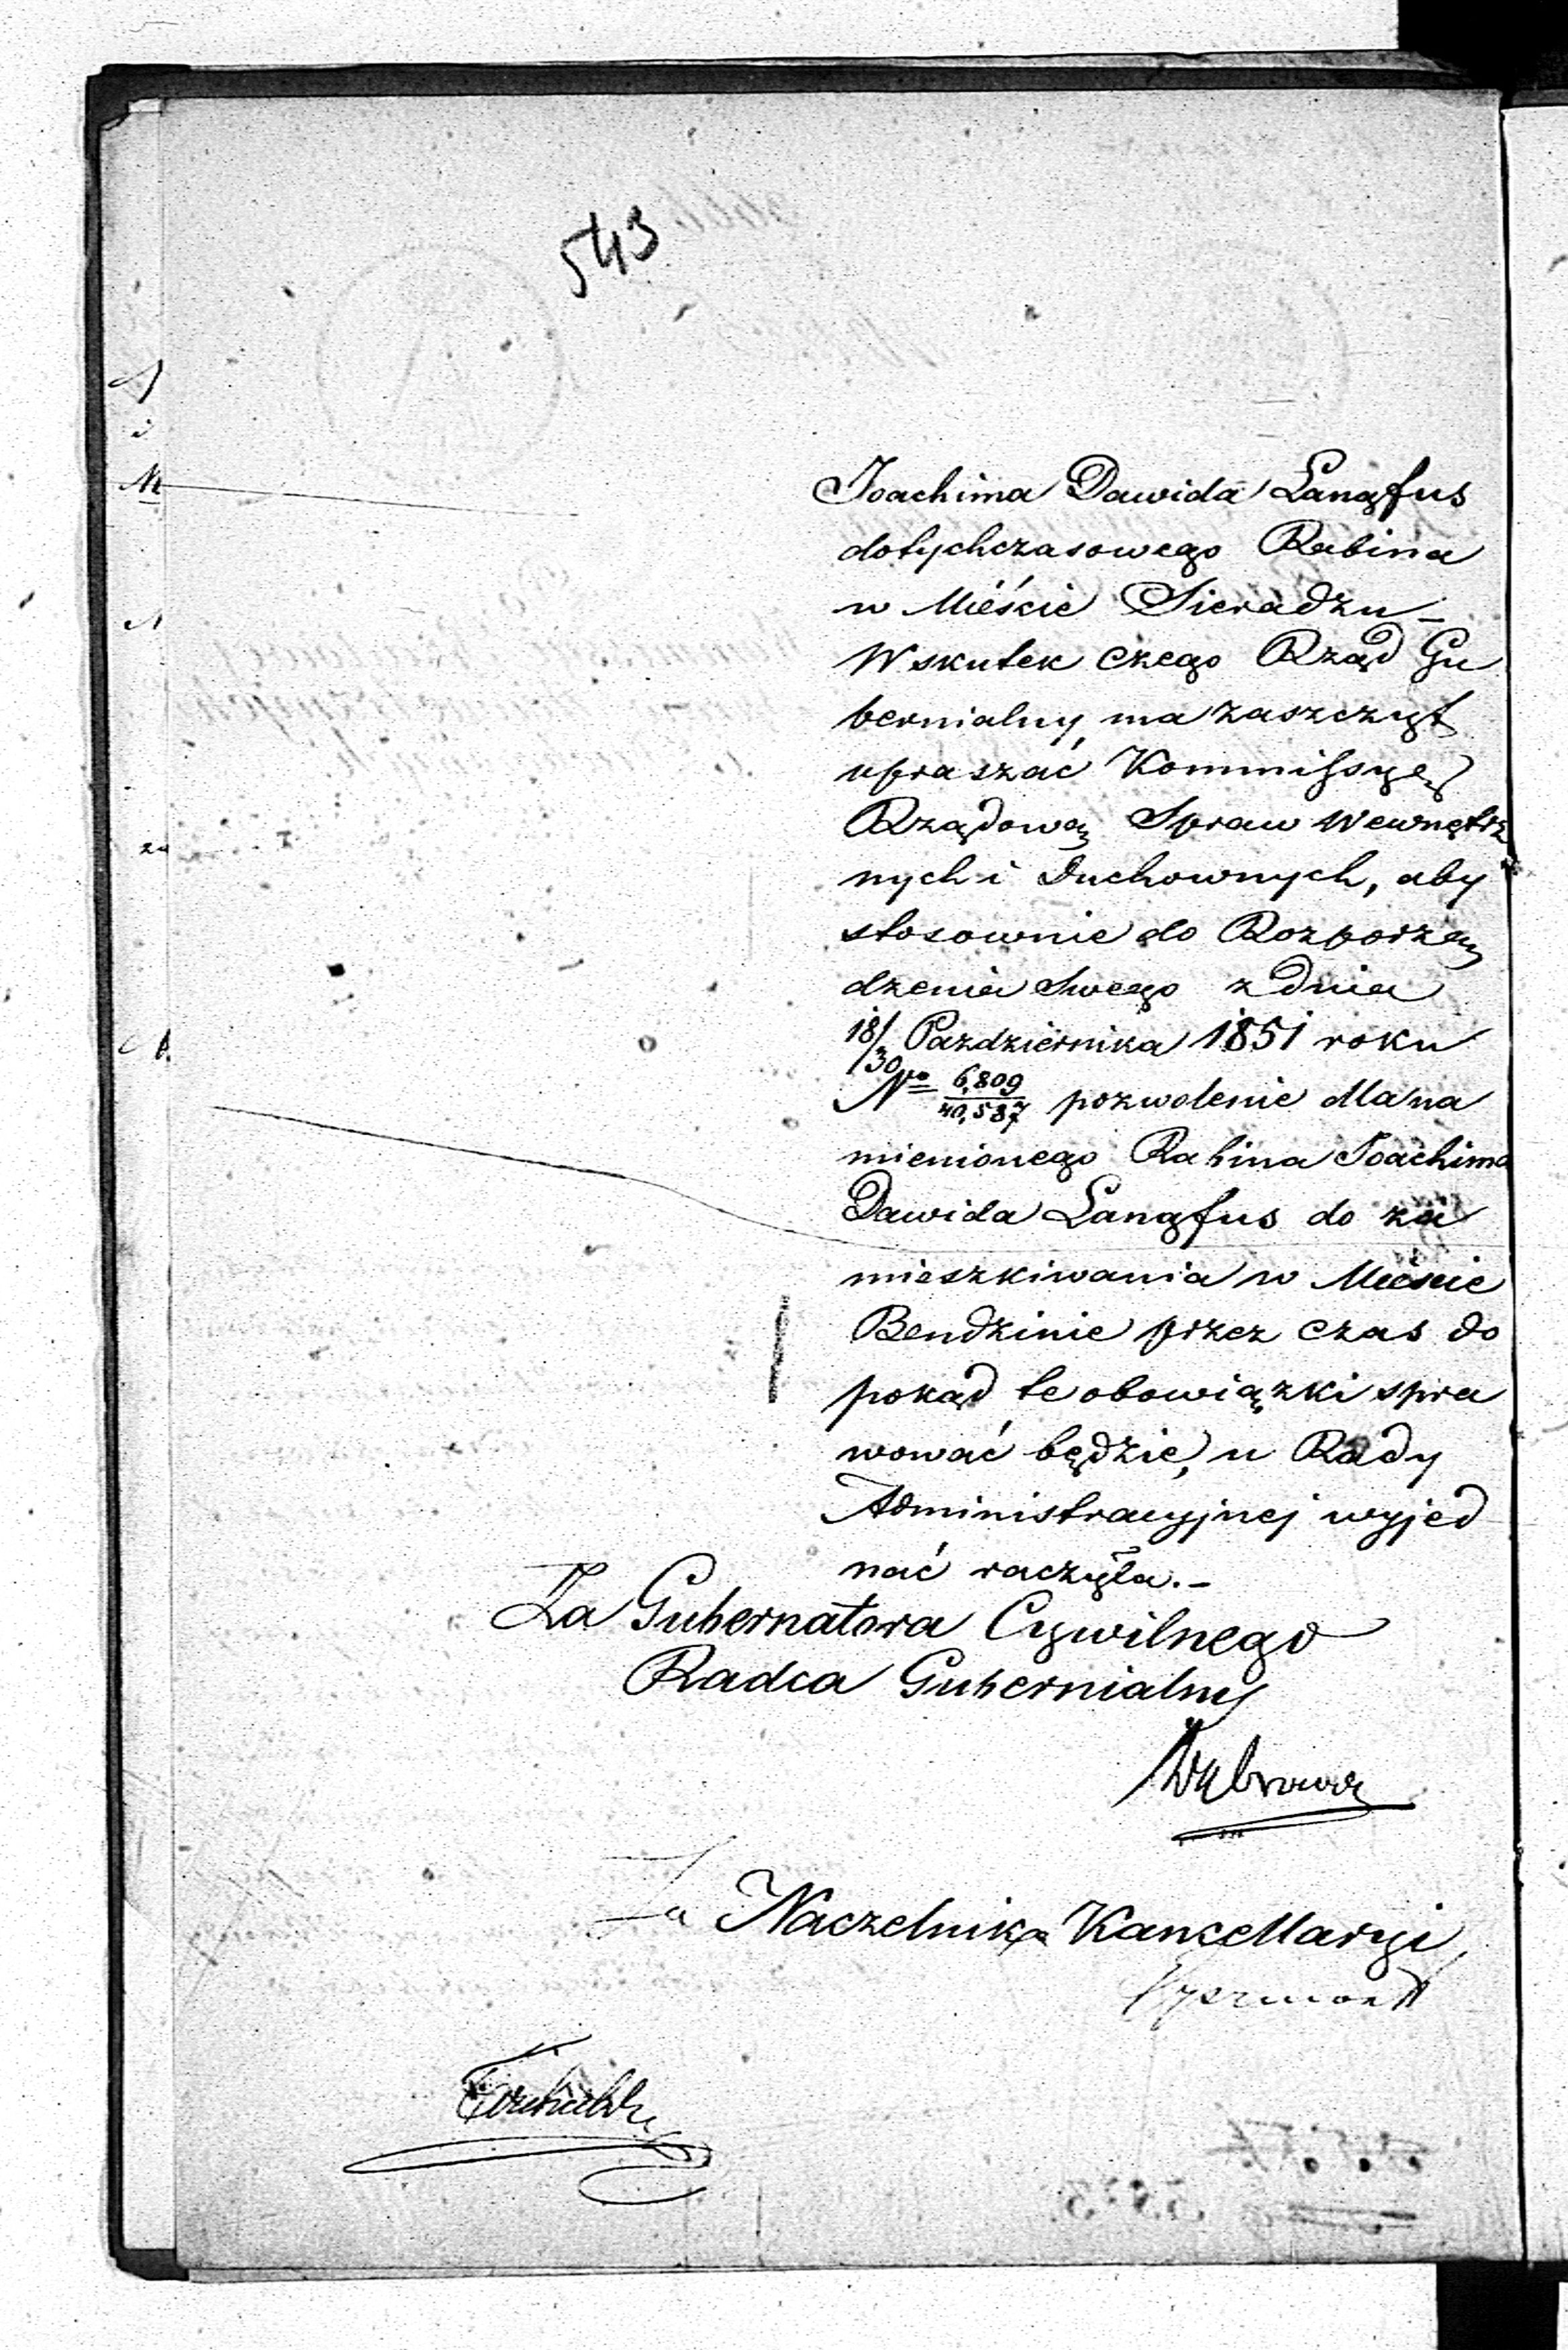 543
Joachima Dawida Langfus
dotychczasowego Rabina
w Mieście Sieradzu –
W skutek czego Rząd Gu
bernialny ma zaszczyt
upraszać Kommissyę
Rządową Spraw Wewnętrz
nych i Duchownych, aby
stosownie do Rozporzą
dzenia Swego z dnia
18/30 Pazdziernika 1851 roku
No 6,809/40,587 pozwolenie dla na
mienionego Rabina Joachima
Dawida Langfus do za
mieszkiwania w Mieście
Bendzinie przez czas do
pokąd te obowiązki spra
wować będzie, u Rady
Administracyjnej wyjed
nać raczyła. –
Za Gubernatora Cywilnego
Radca Gubernialny
Za Naczelnika Kancellaryi